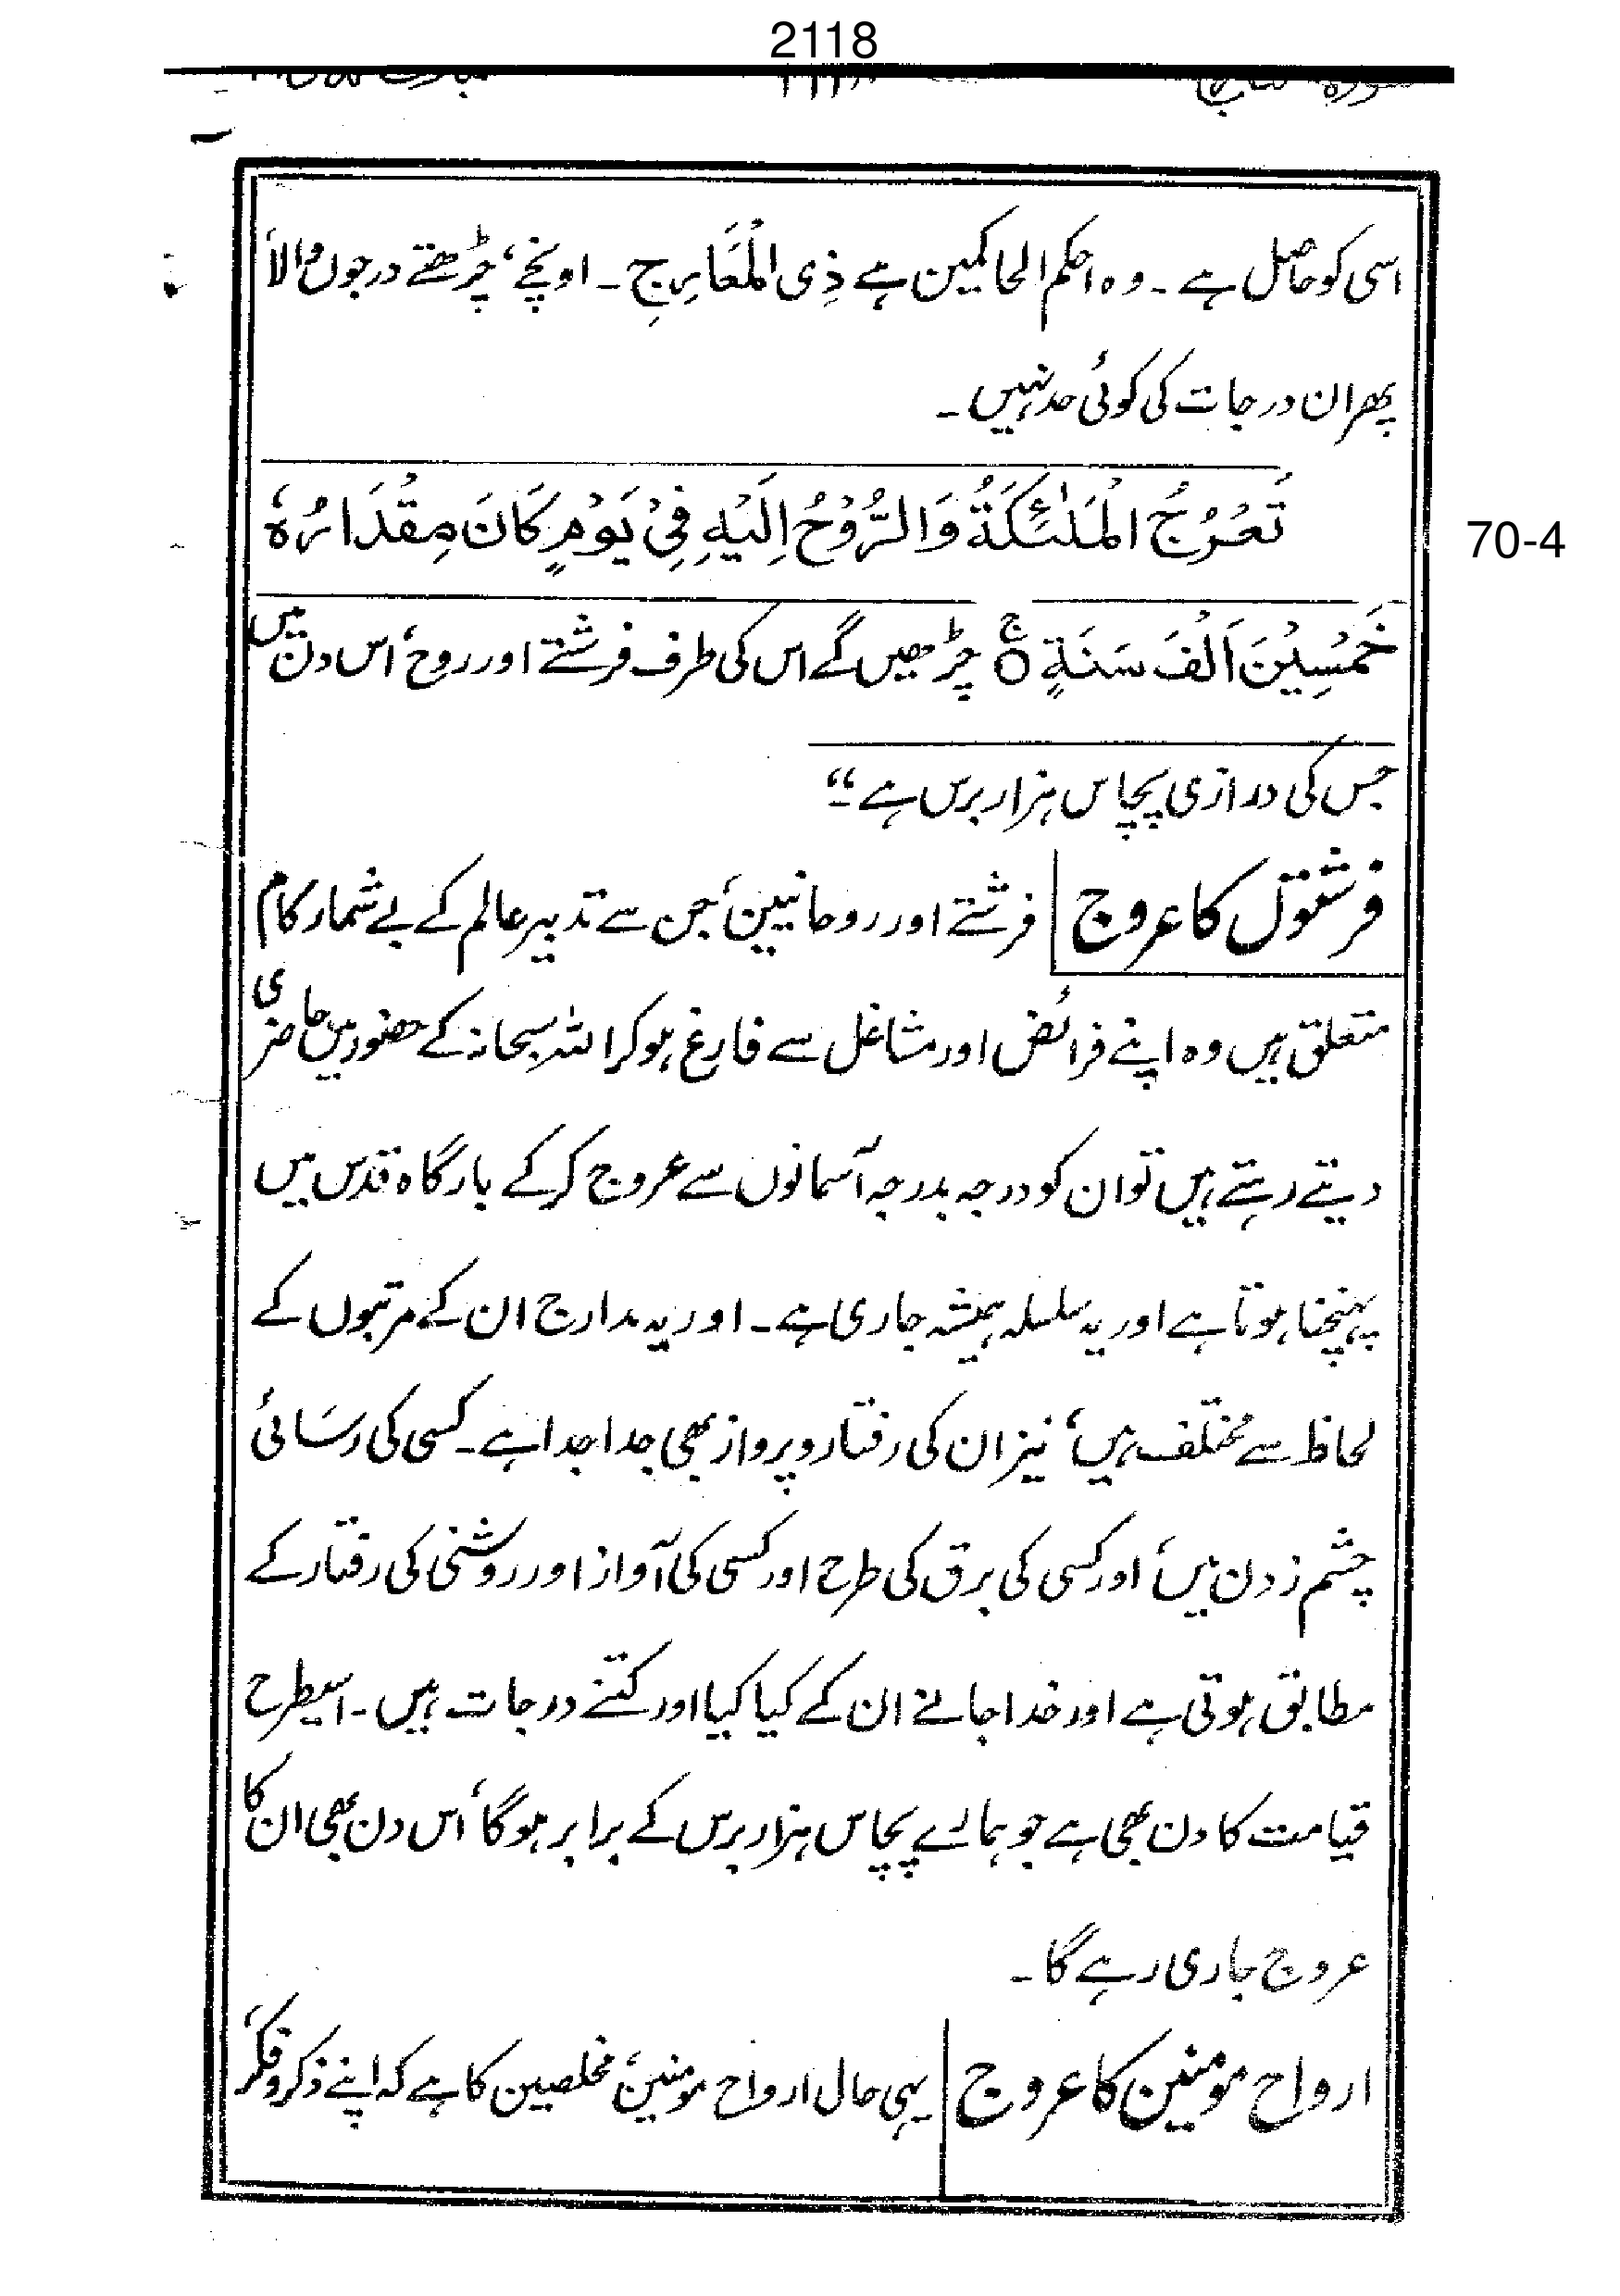 2118
اسی کو حاصل ہے ۔ وہ احکم الحاکمین ہے ذِی الْمَعَارِجِ ۔ اونچے، چڑھتے درجوں والا،
پھر ان درجات کی کوئی حد نہیں ۔
تَعْرُجُ الْمَلٰٓئِكَةُ وَالرُّوْحُ اِلَيْهِ فِيْ يَوْمٍ كَانَ مِقْدَارُهٗ
70-4
خَمْسِيْنَ اَلْفَ سَنَةٍ ۝ ج چڑھیں گے اس کی طرف فرشتے اور روح، اس دن میں
جس کی درازی پچاس ہزار برس ہے ۔“
فرشتوں کا عروج | فرشتے اور روحانیین، جن سے تدبیر عالم کے بے شمار کام
متعلق ہیں وہ اپنے فرائض اور مشاغل سے فارغ ہو کر اللہ سبحانہٗ کے حضور میں حاضری
دیتے رہتے ہیں تو ان کو درجہ بدرجہ آسمانوں سے عروج کر کے بارگاہ قدس میں
پہنچنا ہوتا ہے اور یہ سلسلہ ہمیشہ جاری ہے ۔ اور یہ مدارج ان کے مرتبوں کے
لحاظ سے مختلف ہیں، نیز ان کی رفتار و پرواز بھی جدا جدا ہے ۔ کسی کی رسائی
چشم زدن میں، اور کسی کی برق کی طرح اور کسی کی آواز اور روشنی کی رفتار کے
مطابق ہوتی ہے اور خدا جانے ان کے کیا کیا اور کتنے درجات ہیں ۔ اسیطرح
قیامت کا دن بھی ہے جو ہمارے پچاس ہزار برس کے برابر ہو گا، اس دن بھی ان کا
عروج جاری رہے گا ۔
ارواح مومنین کا عروج | یہی حال ارواح مومنین، مخلصین کا ہے کہ اپنے ذکر و فکر،